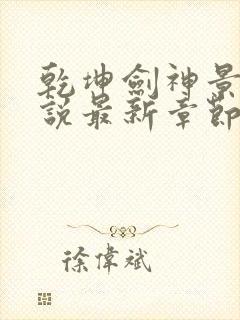 乾坤劍神景
說最新章節
徐偉斌